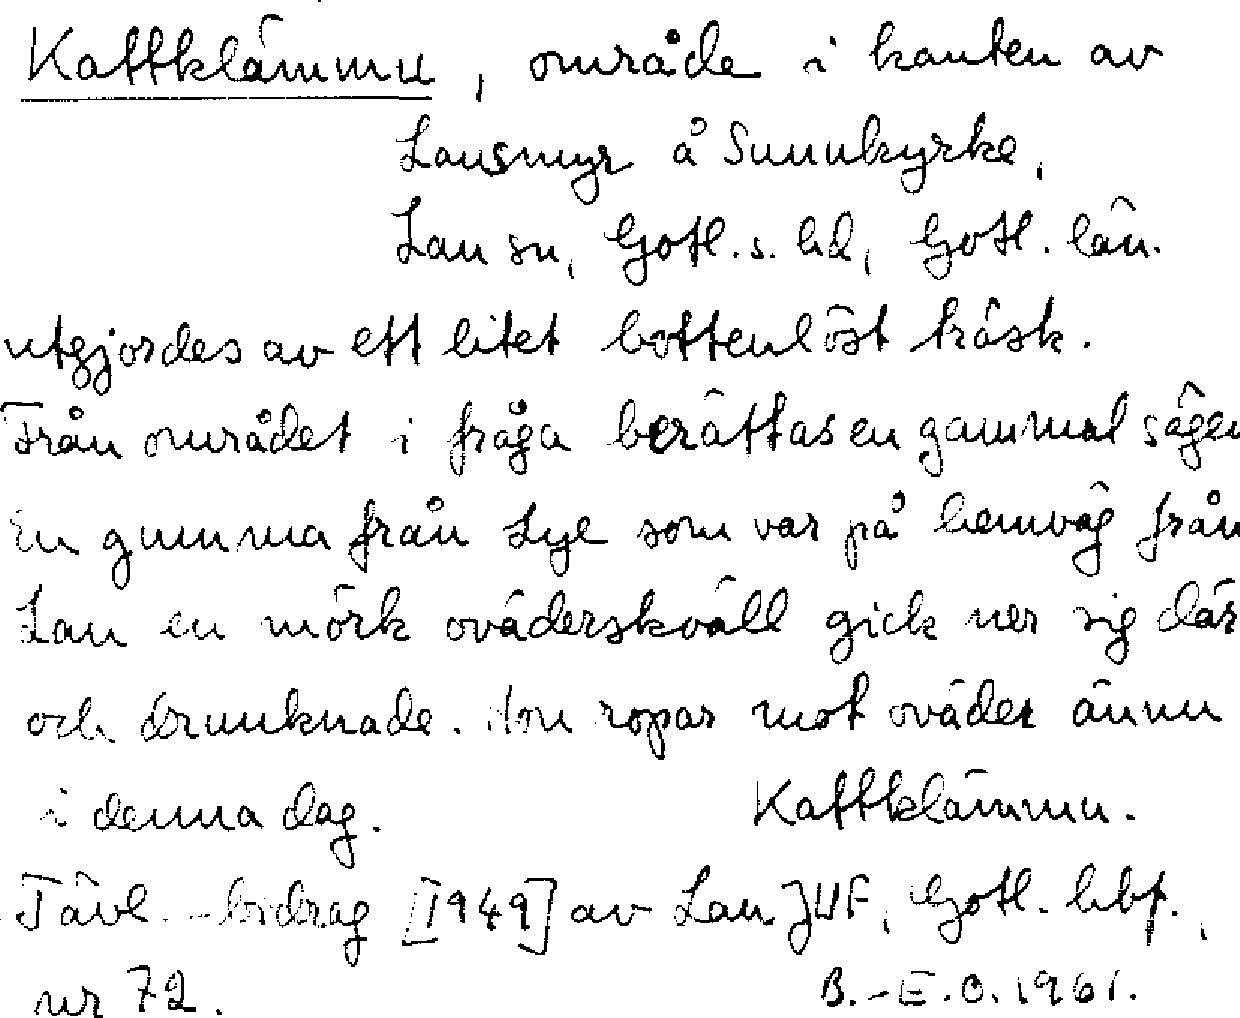 Kattklämmu, område i kanten av
Lausmyr å Sunnkyrke,
Lau sn, Gotl. s. hd, Gotl. län.
utgjordes av ett litet bottenlöst träsk.
Från området i fråga berättas en gammal sägen
En gumma från Lye som var på hemväg från
Lau en mörk oväderskväll gick ner sig där
och drunknade. Hon ropar mot oväder ännu
i denna dag. Kattklämmu.
Tävl.-bidrag [1949] av Lau JUF, Gotl. hbf.,
nr 72. B.-E.O. 1961.